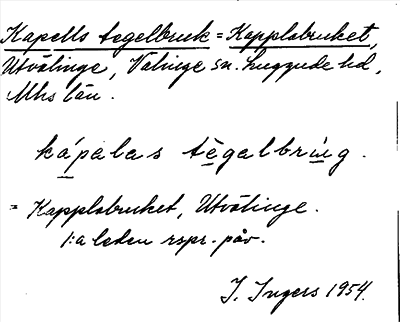 Kapells tegelbruk = Kapplabruket,
Utvälinge, Välinge sn. Luggude hd,
Mhs län.
kápalas tègalbrùg.
= Kapplabruket, Utvälinge.
1:a leden rspr. påv.
I. Ingers 1954.